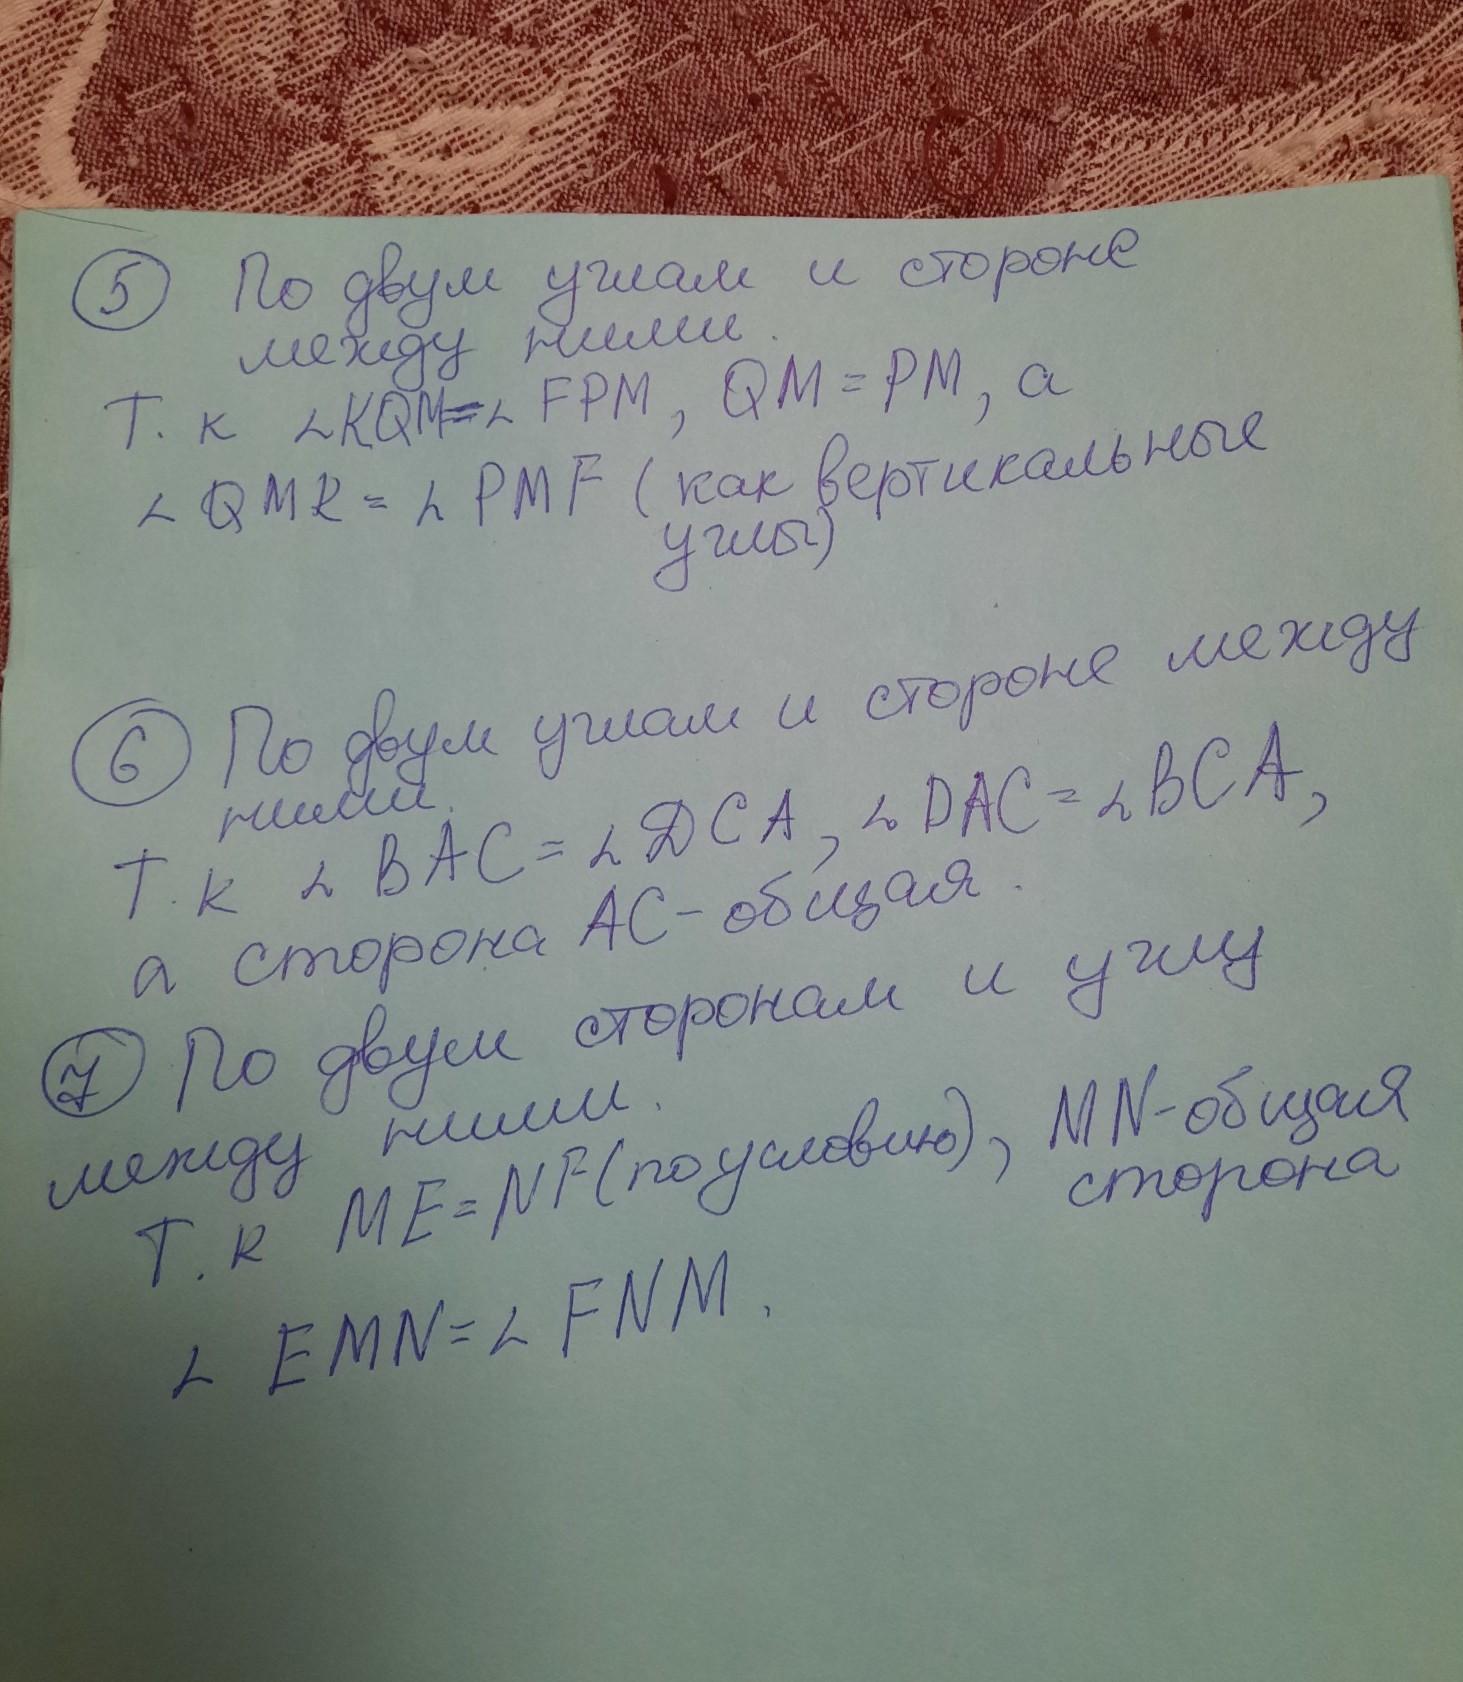 5 По двум углам и стороне
между ними.
Т. к ∠KQM=∠ FPM, QM=PM, а
∠QMK=∠PMF (как вертикальные
углы)
6 По двум углам и стороне между
ними.
Т. к ∠BAC=∠DCA, ∠DAC=∠BCA,
а сторона AC-общая.
7 По двум сторонам и углу
между ними.
Т. к ME=NF(по условию), MN-общая
сторона
∠ EMN=∠ FNM.